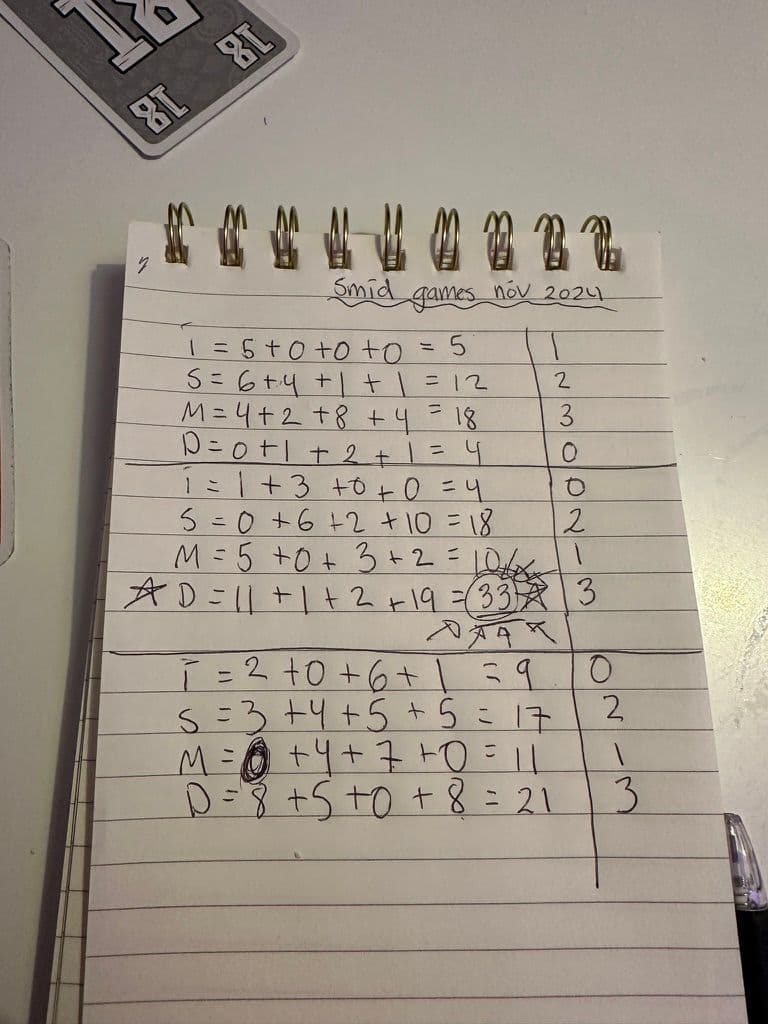 18
18
18
Smid games nóv 2024
i = 5+0+0+0 = 5 1
S = 6+4+1+1 = 12 2
M = 4+2+8+4 = 18 3
D = 0+1+2+1 = 4 0
i = 1+3+0+0 = 4 0
S = 0+6+2+10 = 18 2
M = 5+0+3+2 = 10 1
☆ D = 11+1+2+19 = 33 ☆ 3
i = 2+0+6+1 = 9 0
S = 3+4+5+5 = 17 2
M = 0+4+7+0 = 11 1
D = 8+5+0+8 = 21 3